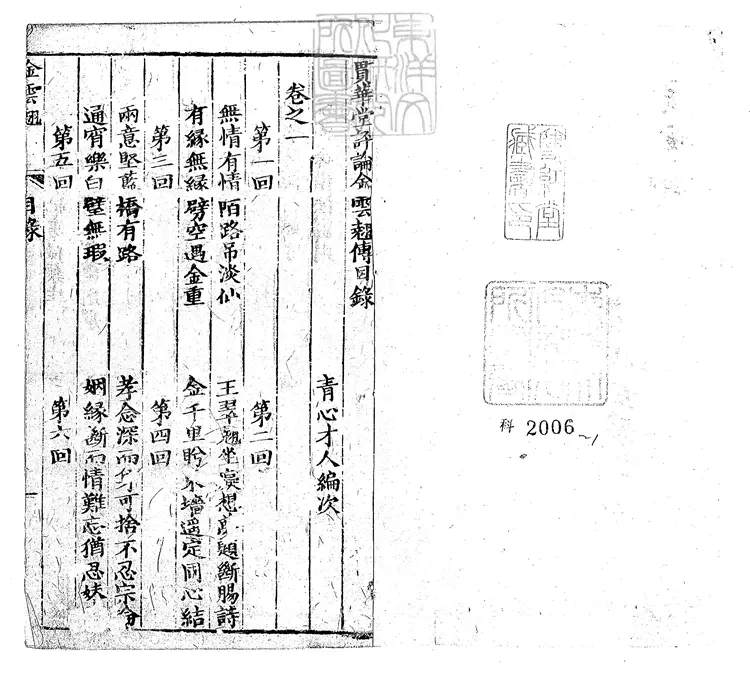 科 2006~1
貫華堂評論金雲翹傳目錄
青心才人編次
卷之一
第一回 第二回
無情有情陌路吊淡仙 王翠翹坐想夢題斷腸詩
有緣無緣劈空遇金重 金千里盼墻遥定同心結
第三回 第四回
兩意堅藍橋有路 孝念深而身可捨不忍宗
通宵樂白璧無瑕 姻緣斷而情難忘猶思妹
第五回 第六回
金雲翹 目錄